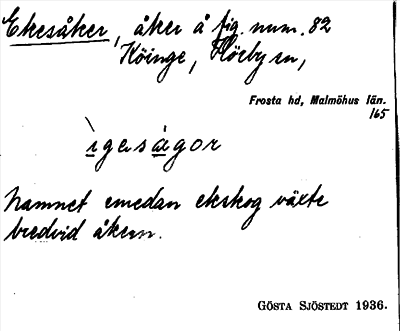 Ekesåker, åker å fig. num. 82
Köinge, Hörby sn,
Frosta hd, Malmöhus län.
165
ìgesàgor
Namnet emedan ekskog växte
bredvid åkern.
GÖSTA SJÖSTEDT 1936.